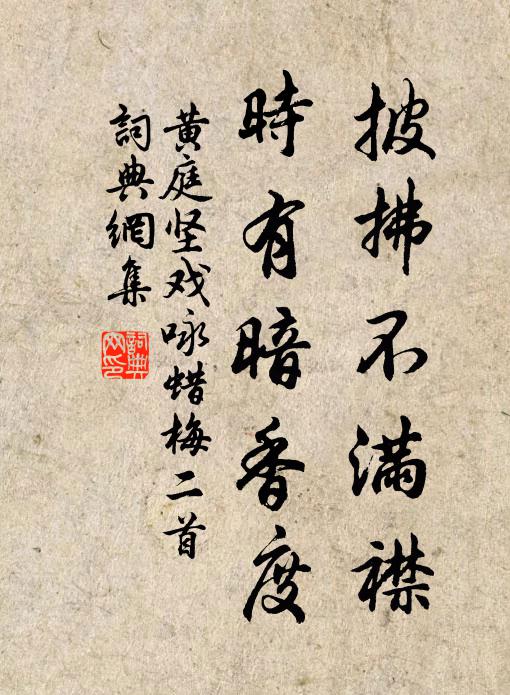 披拂不滿襟
時有暗香度
黄庭坚戏咏蜡梅二首
詞典網集
詞典網印